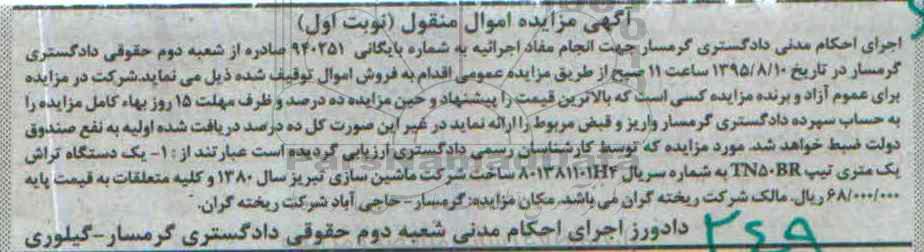 آگهی مزایده اموال منقول (نوبت اول)
اجرای احکام مدنی دادگستری گرمسار جهت انجام مفاد اجرائیه به شماره بایگانی ۹۴۰۲۵۱ صادره از شعبه دوم حقوقی دادگستری
گرمسار در تاریخ ۱۳۹۵/۸/۱۰ ساعت ۱۱ صبح از طریق مزایده عمومی اقدام به فروش اموال توقیف شده ذیل می نماید.شرکت در مزایده
برای عموم آزاد و برنده مزایده کسی است که بالاترین قیمت را پیشنهاد و حین مزایده ده درصد و ظرف مهلت ۱۵ روز بهاء کامل مزایده را
به حساب سپرده دادگستری گرمسار واریز و قبض مربوط را ارائه نماید در غیر این صورت کل ده درصد دریافت شده اولیه به نفع صندوق
دولت ضبط خواهد شد. مورد مزایده که توسط کارشناسان رسمی دادگستری ارزیابی گردیده است عبارتند از : ۱- یک دستگاه تراش
یک متری تیپ TN۵۰BR به شماره سریال ۸۰۱۳۸۱۱۰۱H۴ ساخت شرکت ماشین سازی تبریز سال ۱۳۸۰ و کلیه متعلقات به قیمت پایه
۶۸/۰۰۰/۰۰۰ ریال. مالک شرکت ریخته گران می باشد. مکان مزایده: گرمسار- حاجی آباد شرکت ریخته گران.
دادورز اجرای احکام مدنی شعبه دوم حقوقی دادگستری گرمسار-گیلوری
۲۶۹